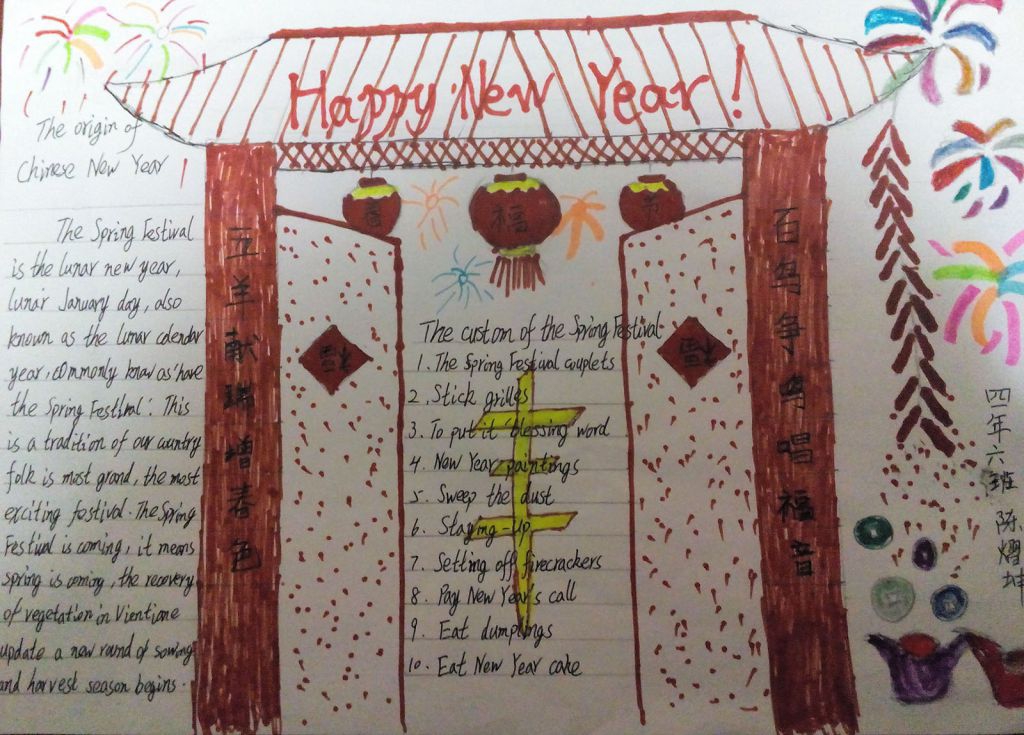 Happy New Year!
The origin of
Chinese New Year!
The Spring Festival
is the lunar new year,
lunar January day, also
known as the lunar calendar
year, commonly known as "have
the Spring Festival". This
is a tradition of our country
folk is most grand, the most
exciting festival. The Spring
Festival is coming, it means
spring is coming, the recovery
of vegetation in Vientiane
update a new round of sowing
and harvest season begins.
五羊献瑞增春色
春
福
节
福
福
The custom of the Spring Festival
1. The Spring Festival couplets
2. Stick grilles
3. To put it "blessing word
4. New Year paintings
5. Sweep the dust
6. Staying-up
7. Setting off firecrackers
8. Pay New Year's call
9. Eat dumplings
10. Eat New Year cake
百鸟争鸣唱福音
四年六班 陈熠坤